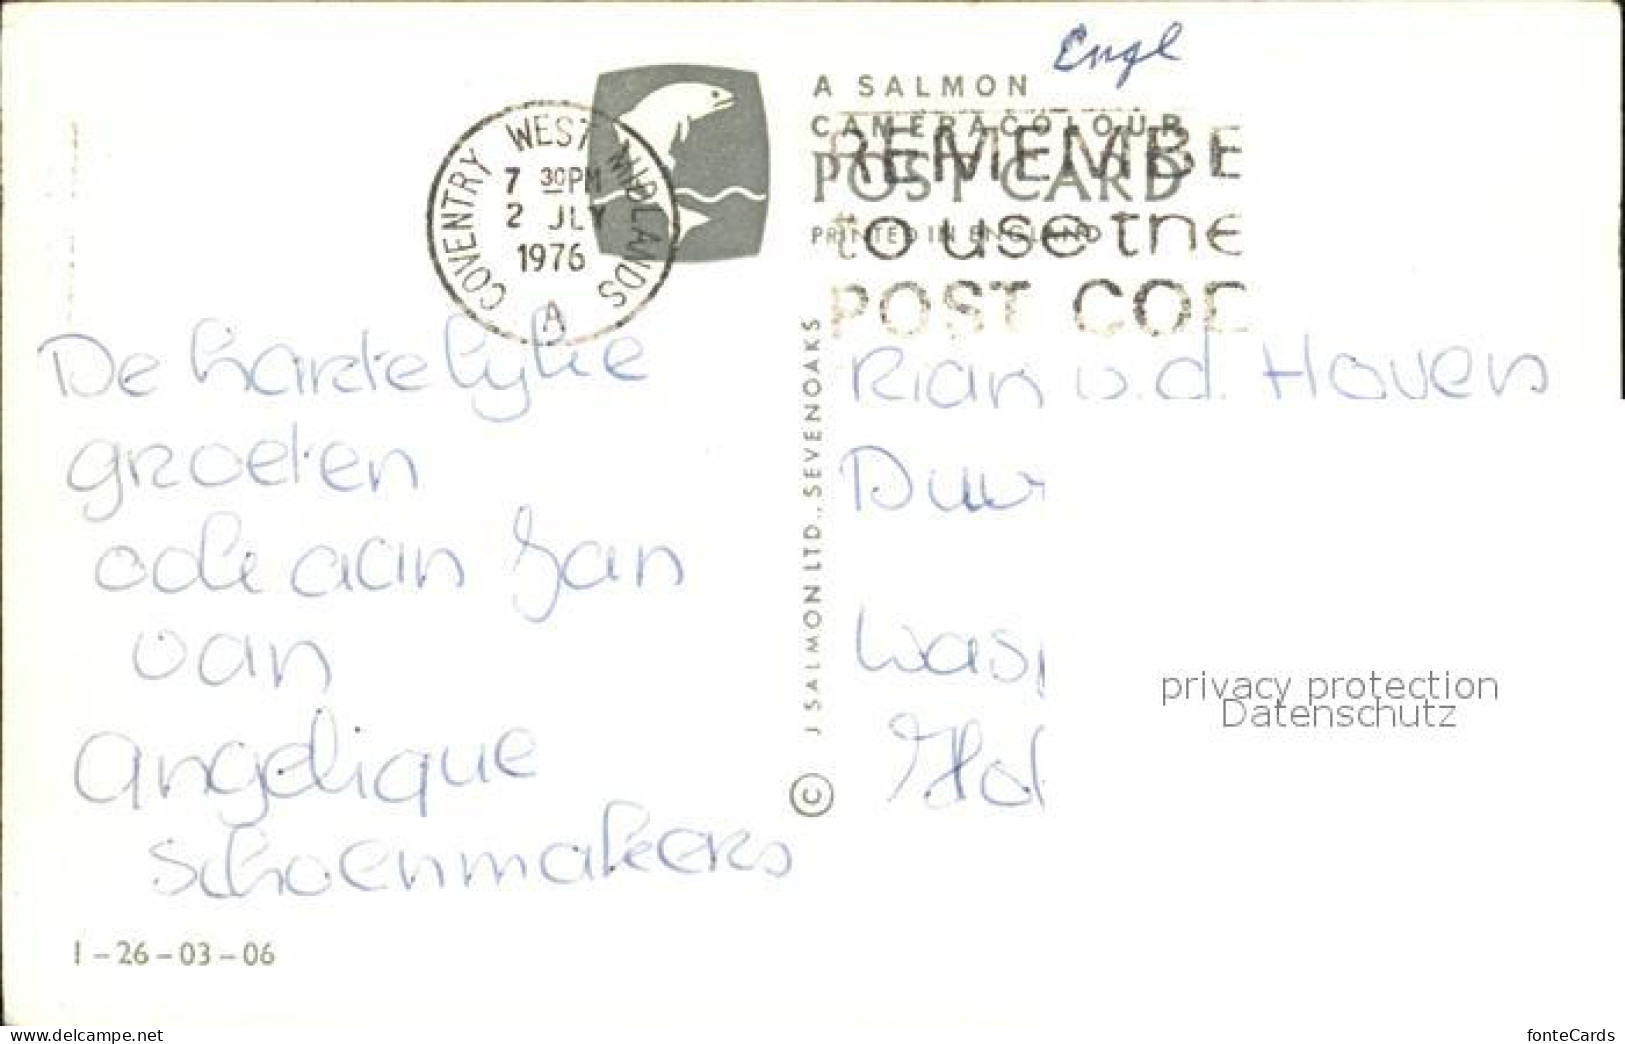 Engl
A SALMON
CAMERACOLOUR
POST CARD
PRINTED IN ENGLAND
REMEMBE
to use the
POST COD
COVENTRY WEST MIDLANDS
7 30PM
2 JLY
1976
A
De hartelijke
groeten
ook aan Jan
van
Angelique
Schoenmakers
Rian v.d. Hoven
Duu
Wasp
Hol
© J SALMON LTD., SEVENOAKS
privacy protection
Datenschutz
1-26-03-06
www.ansichtskarten-center.de
fonteCards